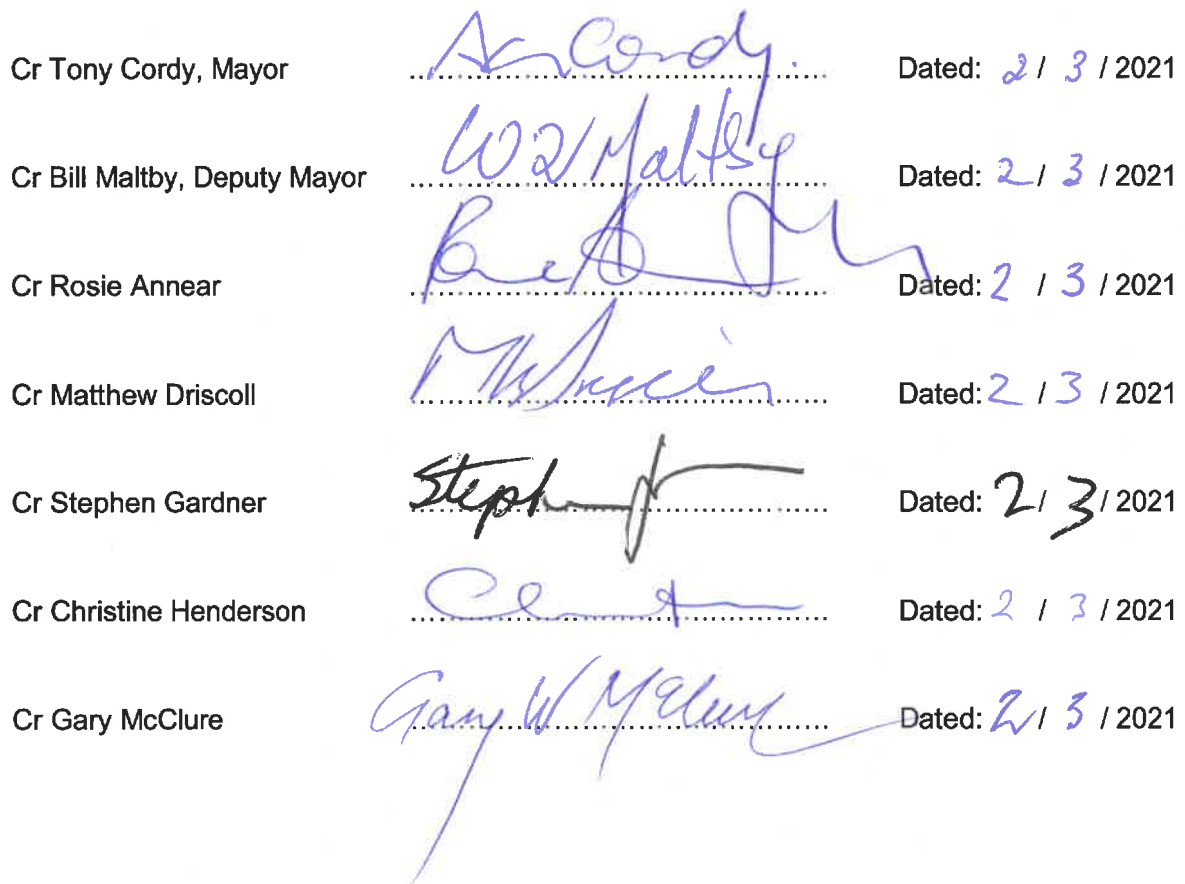 Cr Tony Cordy, Mayor Cordy. Dated: 2 / 3 / 2021
Cr Bill Maltby, Deputy Mayor Maltby Dated: 2 / 3 / 2021
Cr Rosie Annear Dated: 2 / 3 / 2021
Cr Matthew Driscoll Dated: 2 / 3 / 2021
Cr Stephen Gardner Stephen Dated: 2 / 3 / 2021
Cr Christine Henderson Dated: 2 / 3 / 2021
Cr Gary McClure Gary W McClure Dated: 2 / 3 / 2021